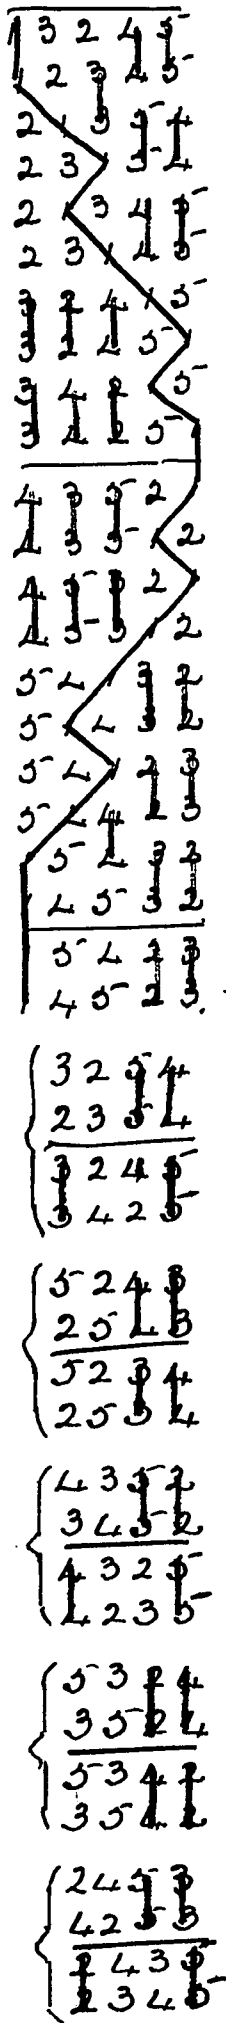 1 3 2 4 5
1 2 3 4 5
2 1 3 5 4
2 3 1 5 4
2 1 3 4 5
2 3 1 4 5
3 2 4 1 5
3 2 4 5 1
3 4 2 1 5
3 4 2 5 1
4 3 5 2 1
4 3 5 1 2
4 5 3 2 1
4 5 3 1 2
5 4 1 3 2
5 1 4 3 2
5 4 1 2 3
5 1 4 2 3
1 5 4 3 2
1 4 5 3 2
1 5 4 2 3
1 4 5 2 3.
3 2 5 4
2 3 5 4
3 2 4 5
3 4 2 5
5 2 4 3
2 5 4 3
5 2 3 4
2 5 3 4
4 3 5 2
3 4 5 2
4 3 2 5
4 2 3 5
5 3 2 4
3 5 2 4
5 3 4 2
3 5 4 2
2 4 5 3
4 2 5 3
2 4 3 5
2 3 4 5